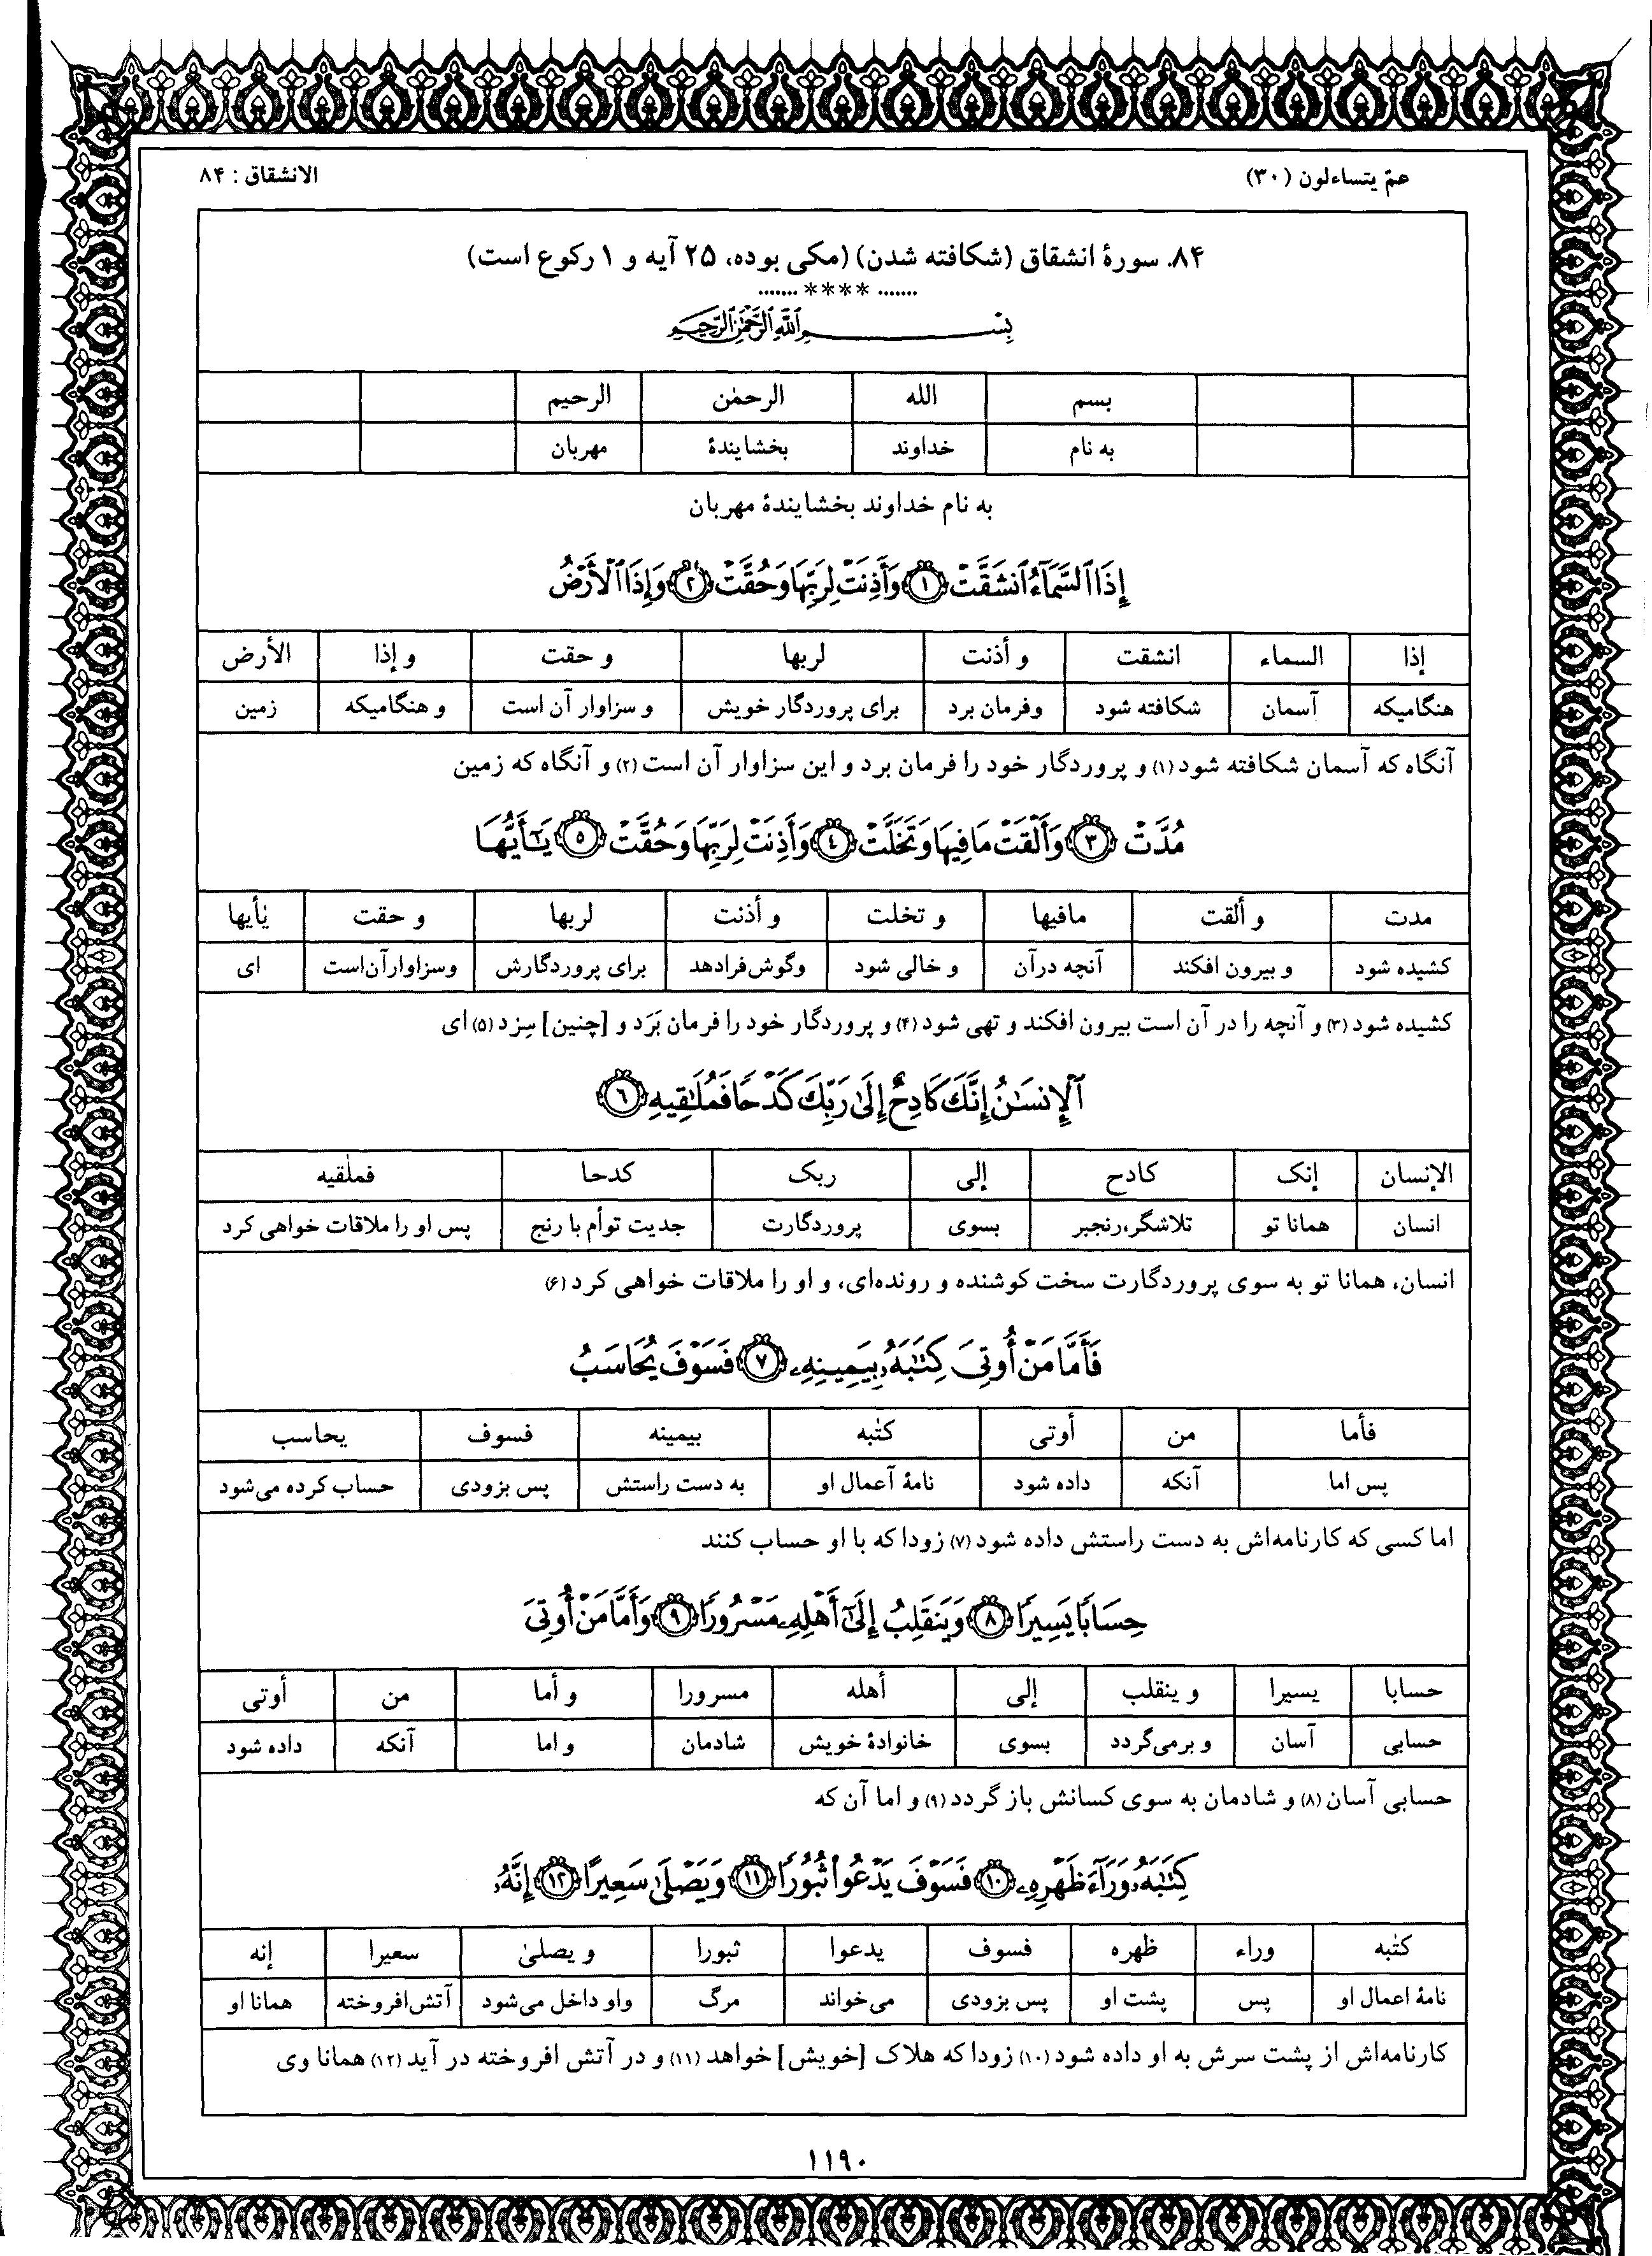 عمّ یتساءلون (۳۰)
الانشقاق : ۸۴
۸۴. سورهٔ انشقاق (شکافته شدن) (مکی بوده، ۲۵ آیه و ۱ رکوع است)
....... **** .......
بِسْمِ ٱللَّهِ ٱلرَّحْمَٰنِ ٱلرَّحِيمِ
بسم الله الرحمٰن الرحیم
به نام خداوند بخشایندهٔ مهربان
به نام خداوند بخشایندهٔ مهربان
إِذَا ٱلسَّمَآءُ ٱنشَقَّتْ ١ وَأَذِنَتْ لِرَبِّهَا وَحُقَّتْ ٢ وَإِذَا ٱلْأَرْضُ
إذا السماء انشقت و أذنت لربها و حقت و إذا الأرض
هنگامیکه آسمان شکافته شود وفرمان برد برای پروردگار خویش و سزاوار آن است و هنگامیکه زمین
آنگاه که آسمان شکافته شود (۱) و پروردگار خود را فرمان برد و این سزاوار آن است (۲) و آنگاه که زمین
مُدَّتْ ٣ وَأَلْقَتْ مَا فِيهَا وَتَخَلَّتْ ٤ وَأَذِنَتْ لِرَبِّهَا وَحُقَّتْ ٥ يَٰٓأَيُّهَا
مدت و ألقت مافیها و تخلت و أذنت لربها و حقت یٰأیها
کشیده شود و بیرون افکند آنچه درآن و خالی شود وگوش‌فرادهد برای پروردگارش وسزاوارآن‌است ای
کشیده شود (۳) و آنچه را در آن است بیرون افکند و تهی شود (۴) و پروردگار خود را فرمان بَرَد و [چنین] سِزد (۵) ای
ٱلْإِنسَٰنُ إِنَّكَ كَادِحٌ إِلَىٰ رَبِّكَ كَدْحًا فَمُلَٰقِيهِ ٦
الإنسان إنک کادح إلی ربک کدحا فملٰقیه
انسان همانا تو تلاشگر،رنجبر بسوی پروردگارت جدیت توأم با رنج پس او را ملاقات خواهی کرد
انسان، همانا تو به سوی پروردگارت سخت کوشنده و رونده‌ای، و او را ملاقات خواهی کرد (۶)
فَأَمَّا مَنْ أُوتِيَ كِتَٰبَهُۥ بِيَمِينِهِۦ ٧ فَسَوْفَ يُحَاسَبُ
فأما من أوتی کتٰبه بیمینه فسوف یحاسب
پس اما آنکه داده شود نامهٔ آعمال او به دست راستش پس بزودی حساب کرده می‌شود
اما کسی که کارنامه‌اش به دست راستش داده شود (۷) زودا که با او حساب کنند
حِسَابًا يَسِيرًا ٨ وَيَنقَلِبُ إِلَىٰٓ أَهْلِهِۦ مَسْرُورًا ٩ وَأَمَّا مَنْ أُوتِيَ
حسابا یسیرا و ینقلب إلی أهله مسرورا و أما من أوتی
حسابی آسان و برمی‌گردد بسوی خانوادهٔ خویش شادمان و اما آنکه داده شود
حسابی آسان (۸) و شادمان به سوی کسانش باز گردد (۹) و اما آن که
كِتَٰبَهُۥ وَرَآءَ ظَهْرِهِۦ ١٠ فَسَوْفَ يَدْعُوا۟ ثُبُورًا ١١ وَيَصْلَىٰ سَعِيرًا ١٢ إِنَّهُۥ
کتٰبه وراء ظهره فسوف یدعوا ثبورا و یصلیٰ سعیرا إنه
نامهٔ اعمال او پس پشت او پس بزودی می‌خواند مرگ واو داخل می‌شود آتش‌افروخته همانا او
کارنامه‌اش از پشت سرش به او داده شود (۱۰) زودا که هلاک [خویش] خواهد (۱۱) و در آتش افروخته در آید (۱۲) همانا وی
۱۱۹۰